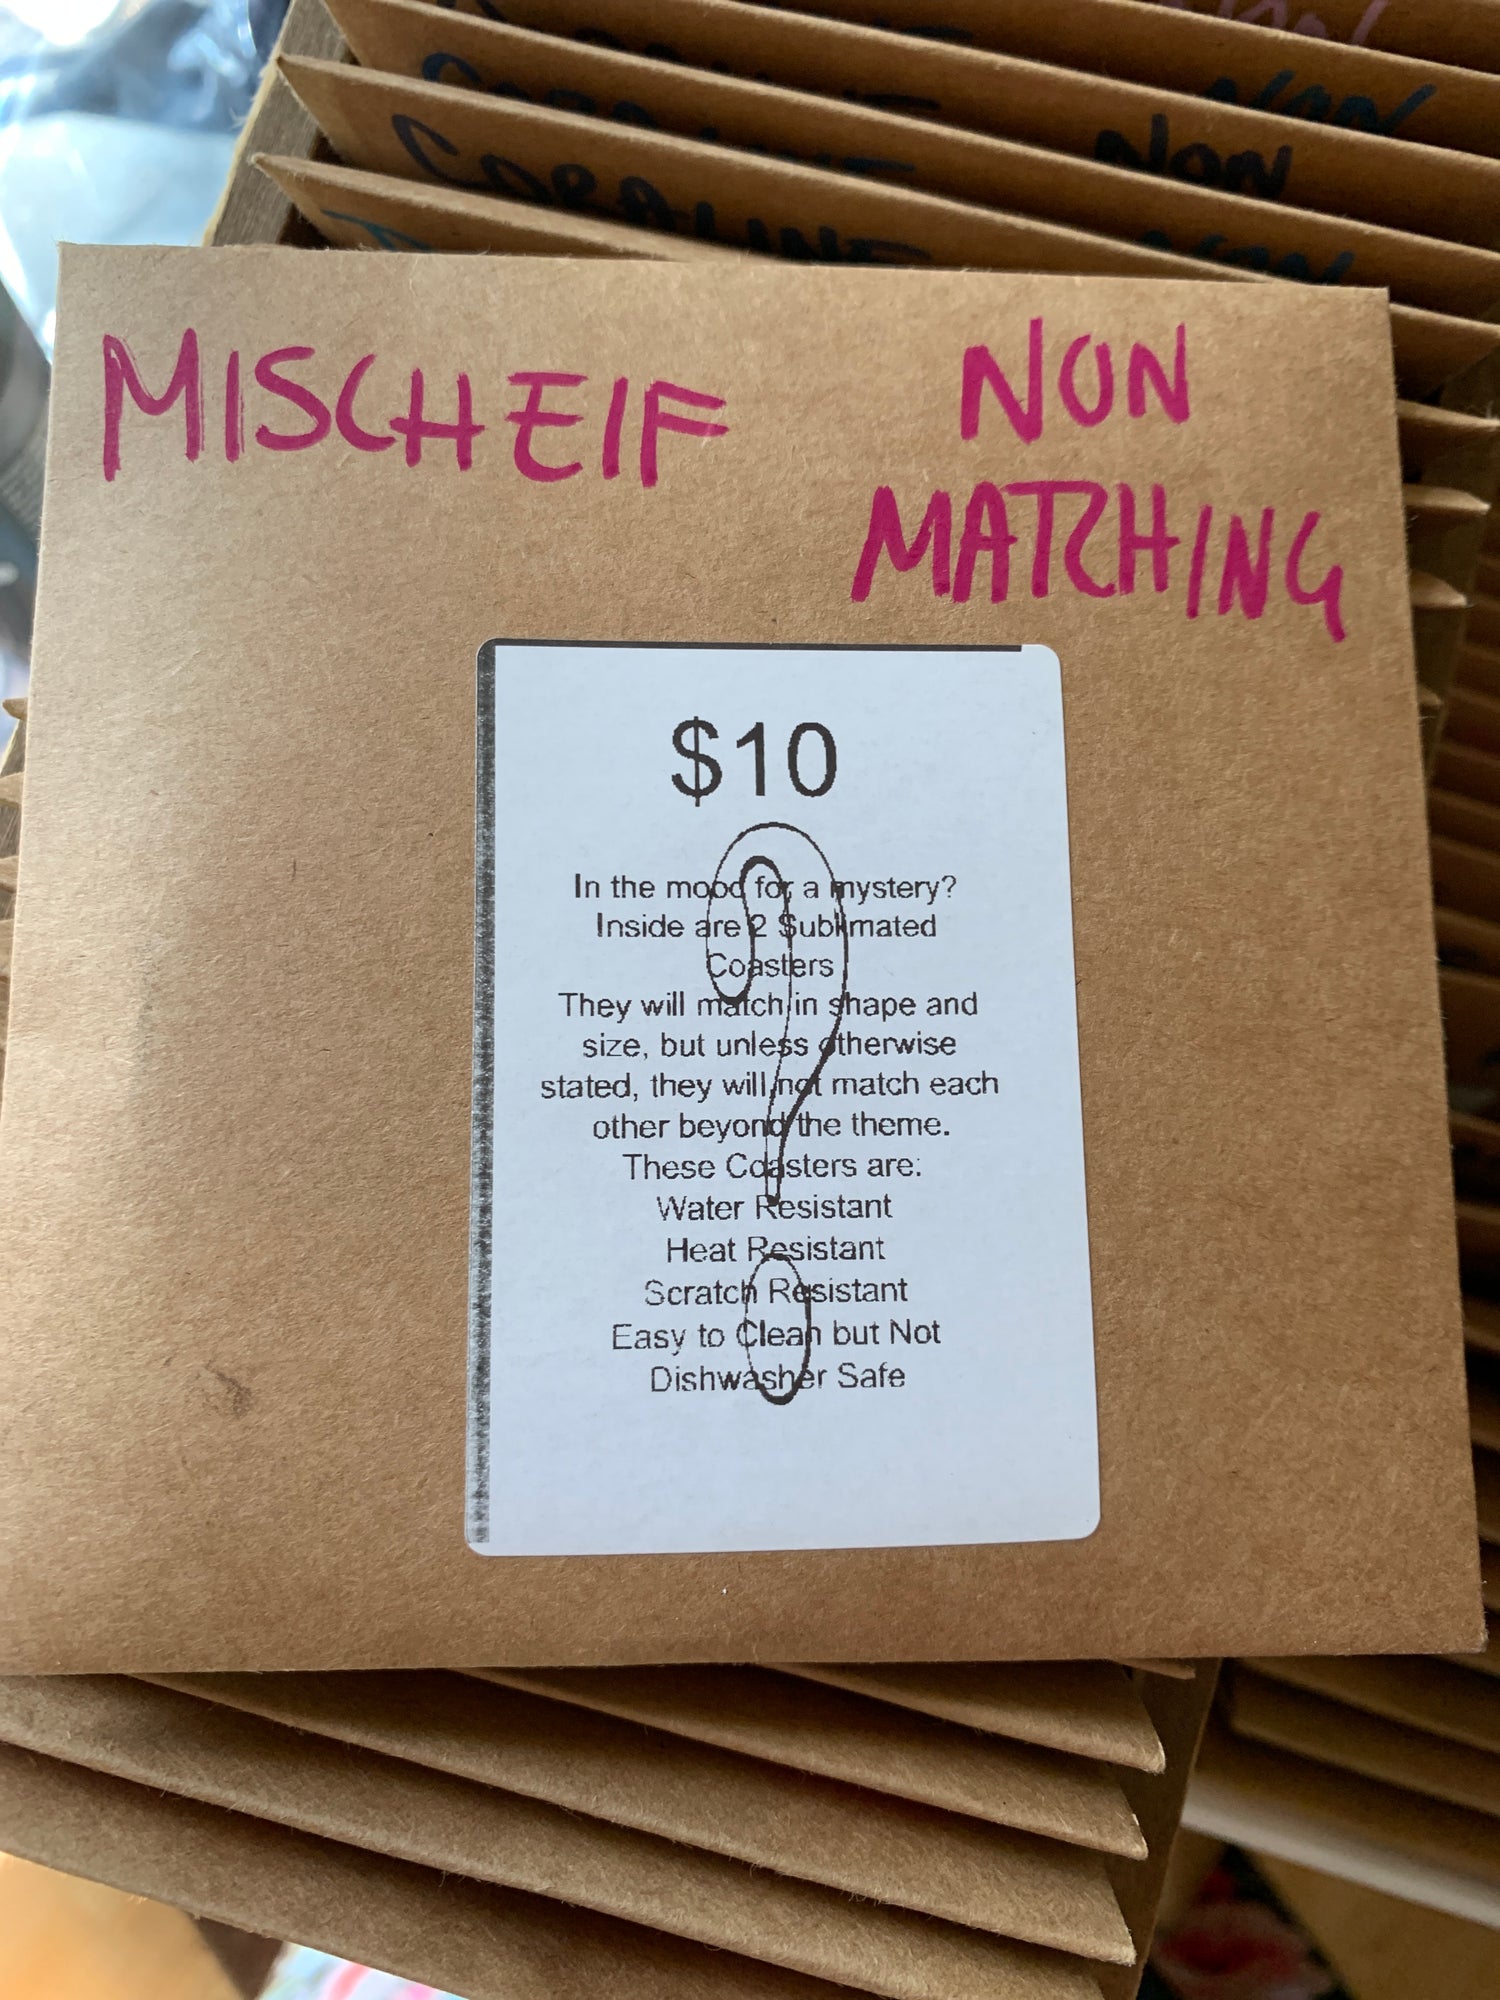 CORALINE
NON
NON
NON
MISCHEIF
NON
MATCHING
$10
In the mood for a mystery?
Inside are 2 Sublimated
Coasters
They will match in shape and
size, but unless otherwise
stated, they will not match each
other beyond the theme.
These Coasters are:
Water Resistant
Heat Resistant
Scratch Resistant
Easy to Clean but Not
Dishwasher Safe